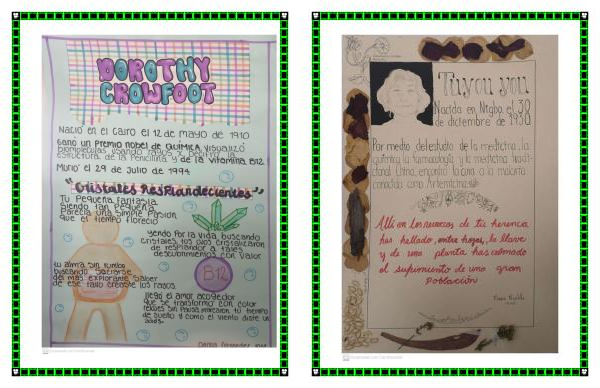 DOROTHY
CROWFOOT
Nació en el Cairo el 12 de mayo de 1910
Ganó un Premio nobel de QUÍMICA, visualizó
biomoléculas usando rayos x
estructura de la Penicilina y de la vitamina B12.
Murió el 29 de Julio de 1994
"Cristales Resplandecientes"
Tu Pequeña fantasía
Siendo tan Pequeña
Parecía una Simple Pasión
que el tiempo Floreció
yendo Por la vida buscando
cristales, tus ojos cristalizaron
de resplandor a tales
descubrimientos con valor
tu alma sin rumbo
buscando
del más explorante saber
de ese fallo creaste los rayos.
B12
llegó el amor acogedor
que se transformó con color
relojes sin pausa marcaron tú tiempo
de sueño y como el viento diste un
adiós.
Tuyou you
Nacida en Nigbo el 30
de diciembre de 1930
Por medio del estudio de la medicina, la
química, la farmacología y la medicina tradi-
cional China, encontró la cura a la malaria
conocida como Artemicina
Allí en los recursos de tu herencia
has hallado, entre hojas, la llave
y de una planta has calmado
el sufrimiento de una gran
población